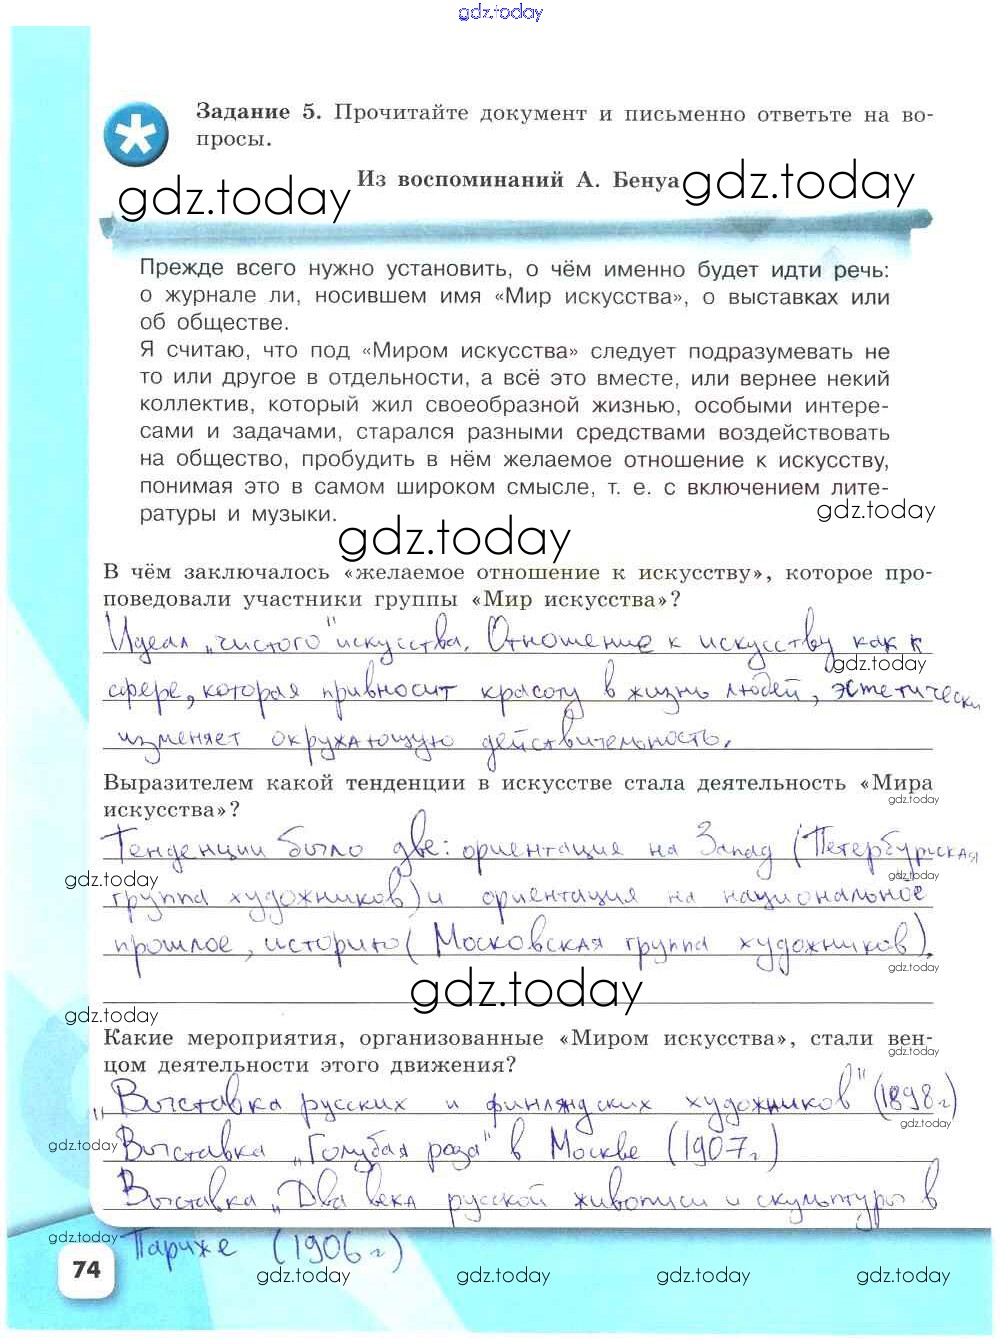 gdz.today
Задание 5. Прочитайте документ и письменно ответьте на во-
просы.
Из воспоминаний А. Бенуа
gdz.today gdz.today
Прежде всего нужно установить, о чём именно будет идти речь:
о журнале ли, носившем имя «Мир искусства», о выставках или
об обществе.
Я считаю, что под «Миром искусства» следует подразумевать не
то или другое в отдельности, а всё это вместе, или вернее некий
коллектив, который жил своеобразной жизнью, особыми интере-
сами и задачами, старался разными средствами воздействовать
на общество, пробудить в нём желаемое отношение к искусству,
понимая это в самом широком смысле, т. е. с включением лите-
ратуры и музыки.
gdz.today
gdz.today
В чём заключалось «желаемое отношение к искусству», которое про-
поведовали участники группы «Мир искусства»?
Идеал „чистого" искусства. Отношение к искусству как к
gdz.today
сфере, которая привносит красоту в жизнь людей, эстетически
изменяет окружающую действительность.
Выразителем какой тенденции в искусстве стала деятельность «Мира
искусства»?
gdz.today
Тенденции было две: ориентация на Запад (Петербургская
gdz.today gdz.today
группа художников) и ориентация на национальное
прошлое, историю (Московская группа художников).
gdz.today
gdz.today
gdz.today
Какие мероприятия, организованные «Миром искусства», стали вен-
gdz.today
цом деятельности этого движения?
„Выставка русских и финляндских художников" (1898 г)
gdz.today
gdz.today
Выставка „Голубая роза" в Москве (1907 г)
Выставка „Два века русской живописи и скульптуры в
gdz.today
Париже (1906 г)
74
gdz.today gdz.today gdz.today gdz.today